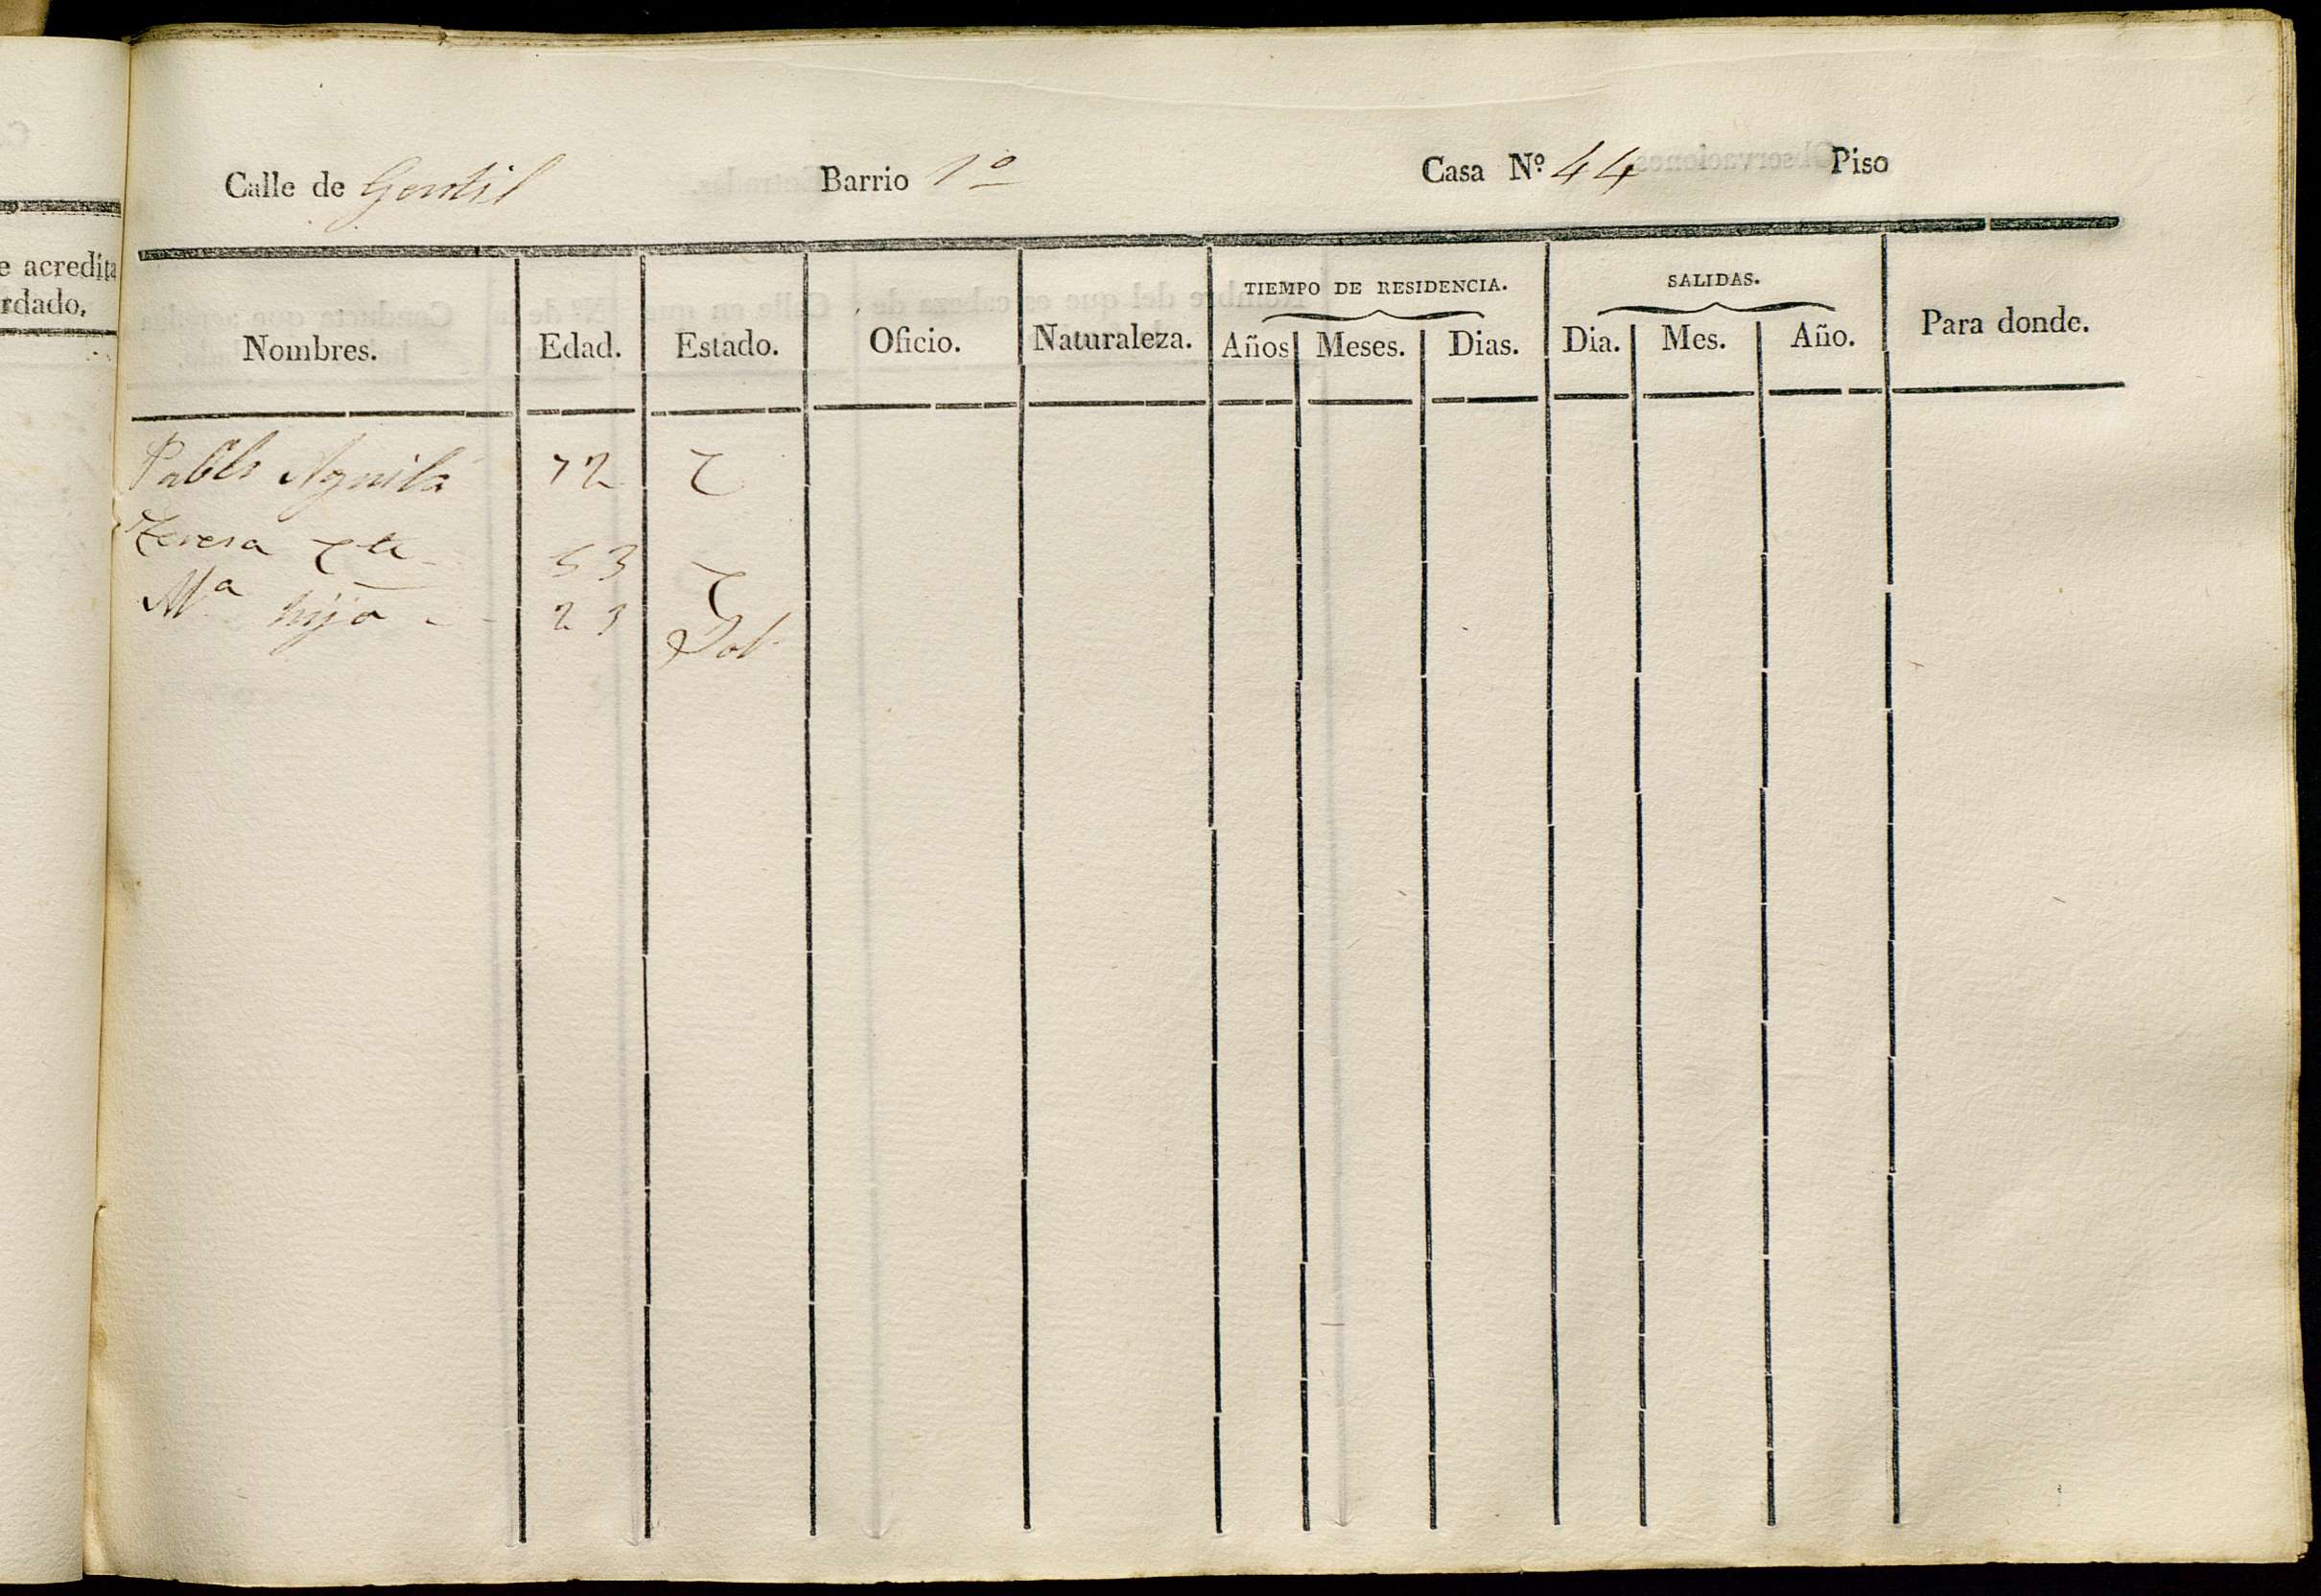 e acredita
rdado,
Calle de Gentil Barrio 1º Casa Nº. 44 Piso
TIEMPO DE RESIDENCIA. SALIDAS.
Nombres. Edad. Estado. Oficio. Naturaleza. Años Meses. Dias. Dia. Mes. Año. Para donde.
Pablo Aguilá 72 C
Teresa 53 C
Mª hija 23 Sol.